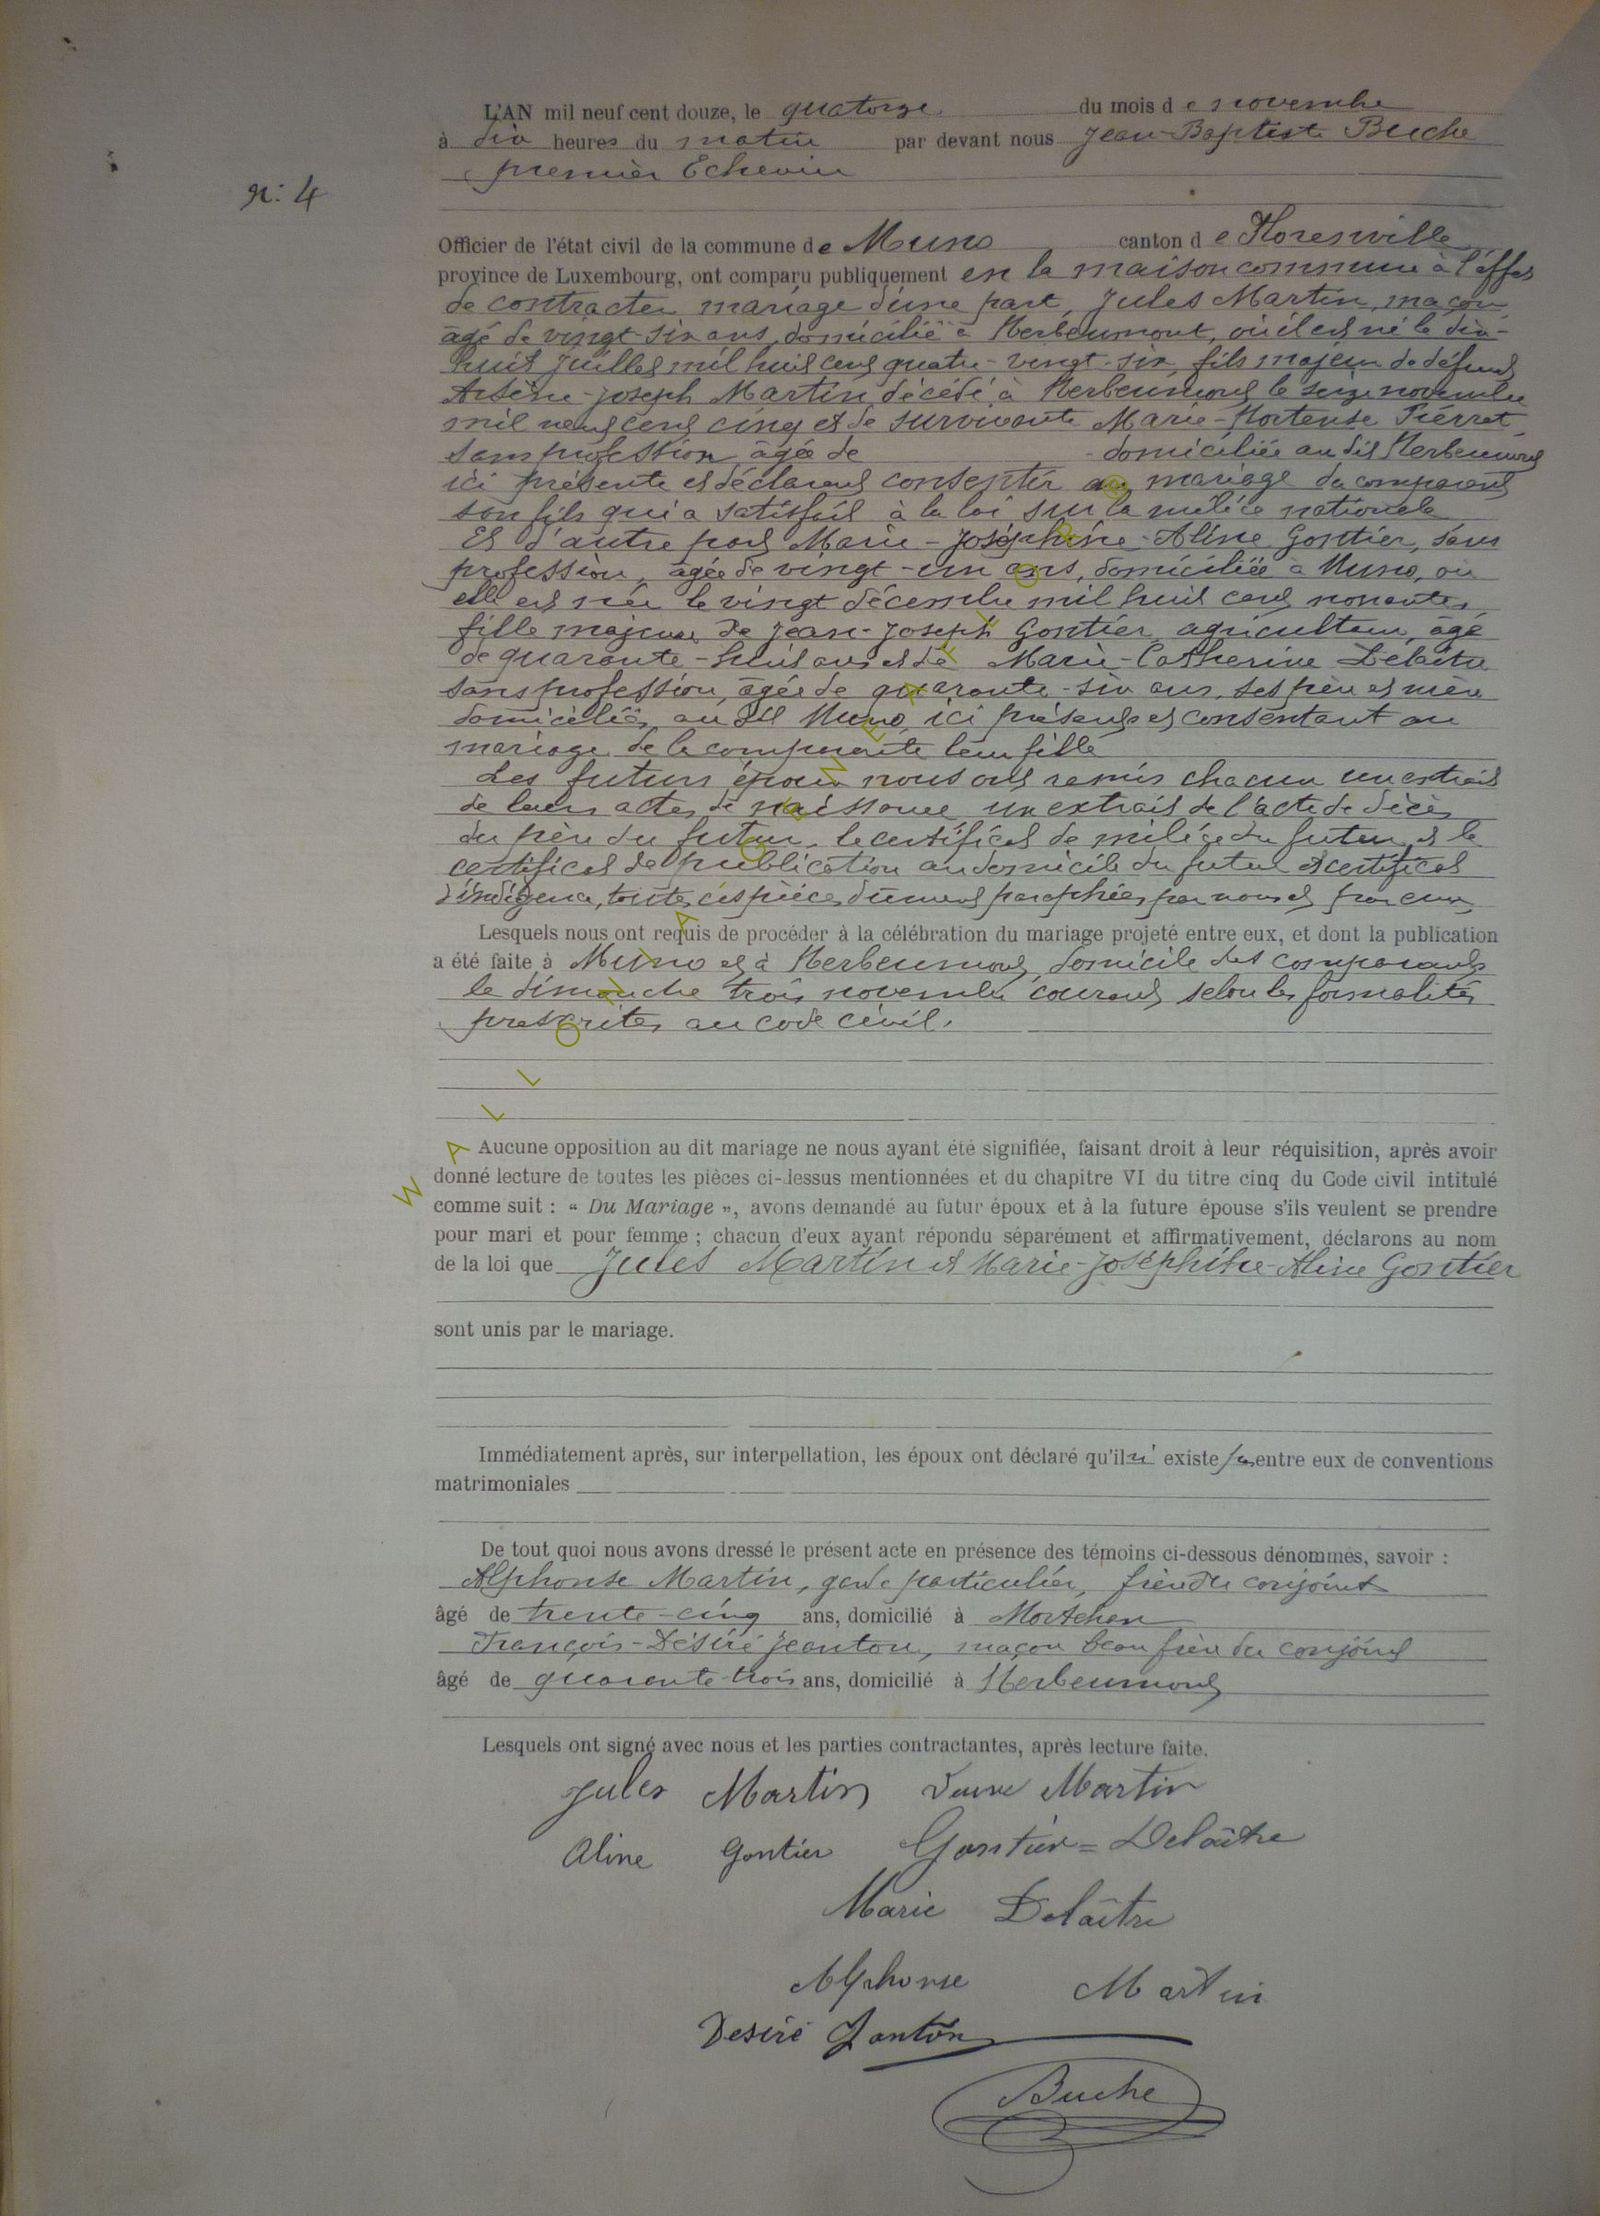 L'AN mil neuf cent douze, le quatorze du mois de novembre
à dix heures du matin par devant nous Jean-Baptiste Buche
premier Echevin
n: 4
Officier de l'état civil de la commune de Muno canton de Florenville
province de Luxembourg, ont comparu publiquement en la maison commune à l'effet
de contracter mariage d'une part, Jules Martin, maçon
âgé de vingt-six ans, domicilié à Herbeumont, où il est né le dix-
huit juillet mil huit cent quatre-vingt-six, fils majeur de défunt
Arsène-Joseph Martin, décédé à Herbeumont le seize novembre
mil neuf cent cinq et de survivante Marie-Hortense Pierret,
sans profession, âgée de domiciliée au dit Herbeumont
ici présente et déclarant consentir au mariage du comparant
son fils qui a satisfait à la loi sur la milice nationale
Et d'autre part Marie-Joséphine-Aline Gontier, sans
profession, âgée de vingt-un ans, domiciliée à Muno, où
elle est née le vingt décembre mil huit cent nonante,
fille majeure de Jean-Joseph Gontier, agriculteur, âgé
de quarante-huit ans et de Marie-Catherine Delaître
sans profession, âgée de quarante-six ans, ses père et mère
domiciliés au dit Muno, ici présents et consentant au
mariage de la comparante leur fille
Les futurs époux nous ont remis chacun un extrait
de leurs actes de naissance, un extrait de l'acte de décès
du père du futur, le certificat de milice du futur et le
certificat de publication au domicile du futur et certificat
d'indigence, toutes ces pièces dûment paraphées par nous et par eux,
Lesquels nous ont requis de procéder à la célébration du mariage projeté entre eux, et dont la publication
a été faite à Muno et à Herbeumont, domicile des comparants
le dimanche trois novembre courant, selon les formalités
prescrites au code civil.
Aucune opposition au dit mariage ne nous ayant été signifiée, faisant droit à leur réquisition, après avoir
donné lecture de toutes les pièces ci-dessus mentionnées et du chapitre VI du titre cinq du Code civil intitulé
comme suit : « Du Mariage », avons demandé au futur époux et à la future épouse s'ils veulent se prendre
pour mari et pour femme ; chacun d'eux ayant répondu séparément et affirmativement, déclarons au nom
de la loi que Jules Martin et Marie-Joséphine-Aline Gontier
sont unis par le mariage.
Immédiatement après, sur interpellation, les époux ont déclaré qu'il n'existe pas entre eux de conventions
matrimoniales
De tout quoi nous avons dressé le présent acte en présence des témoins ci-dessous dénommés, savoir :
Alphonse Martin, garde particulier, frère du conjoint
âgé de trente-cinq ans, domicilié à Mortehan
François-Désiré Jeanton, maçon beau frère du conjoint
âgé de quarante-trois ans, domicilié à Herbeumont
Lesquels ont signé avec nous et les parties contractantes, après lecture faite.
Jules Martin Veuve Martin
Aline Gontier Gontier=Delaître
Marie Delaître
Alphonse Martin
Desiré Janton
Buche
WALLONIA GENEAFLORE ©